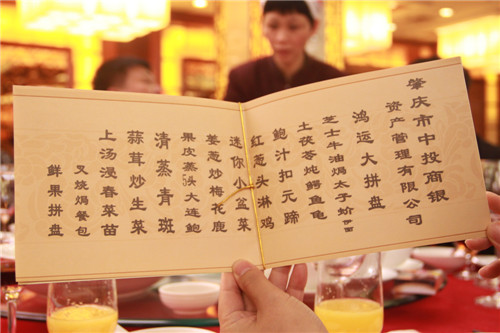 肇庆市中投商银
资产管理有限公司
鸿运大拼盘
芝士牛油焗太子蚧伊面
土茯苓炖鳄鱼龟
鲍汁扣元蹄
红葱头淋鸡
迷你小盆菜
姜葱炒梅花鹿
果皮蒸头大连鲍
清蒸青斑
蒜茸炒生菜
上汤浸春菜苗
叉烧焗餐包
鲜果拼盘